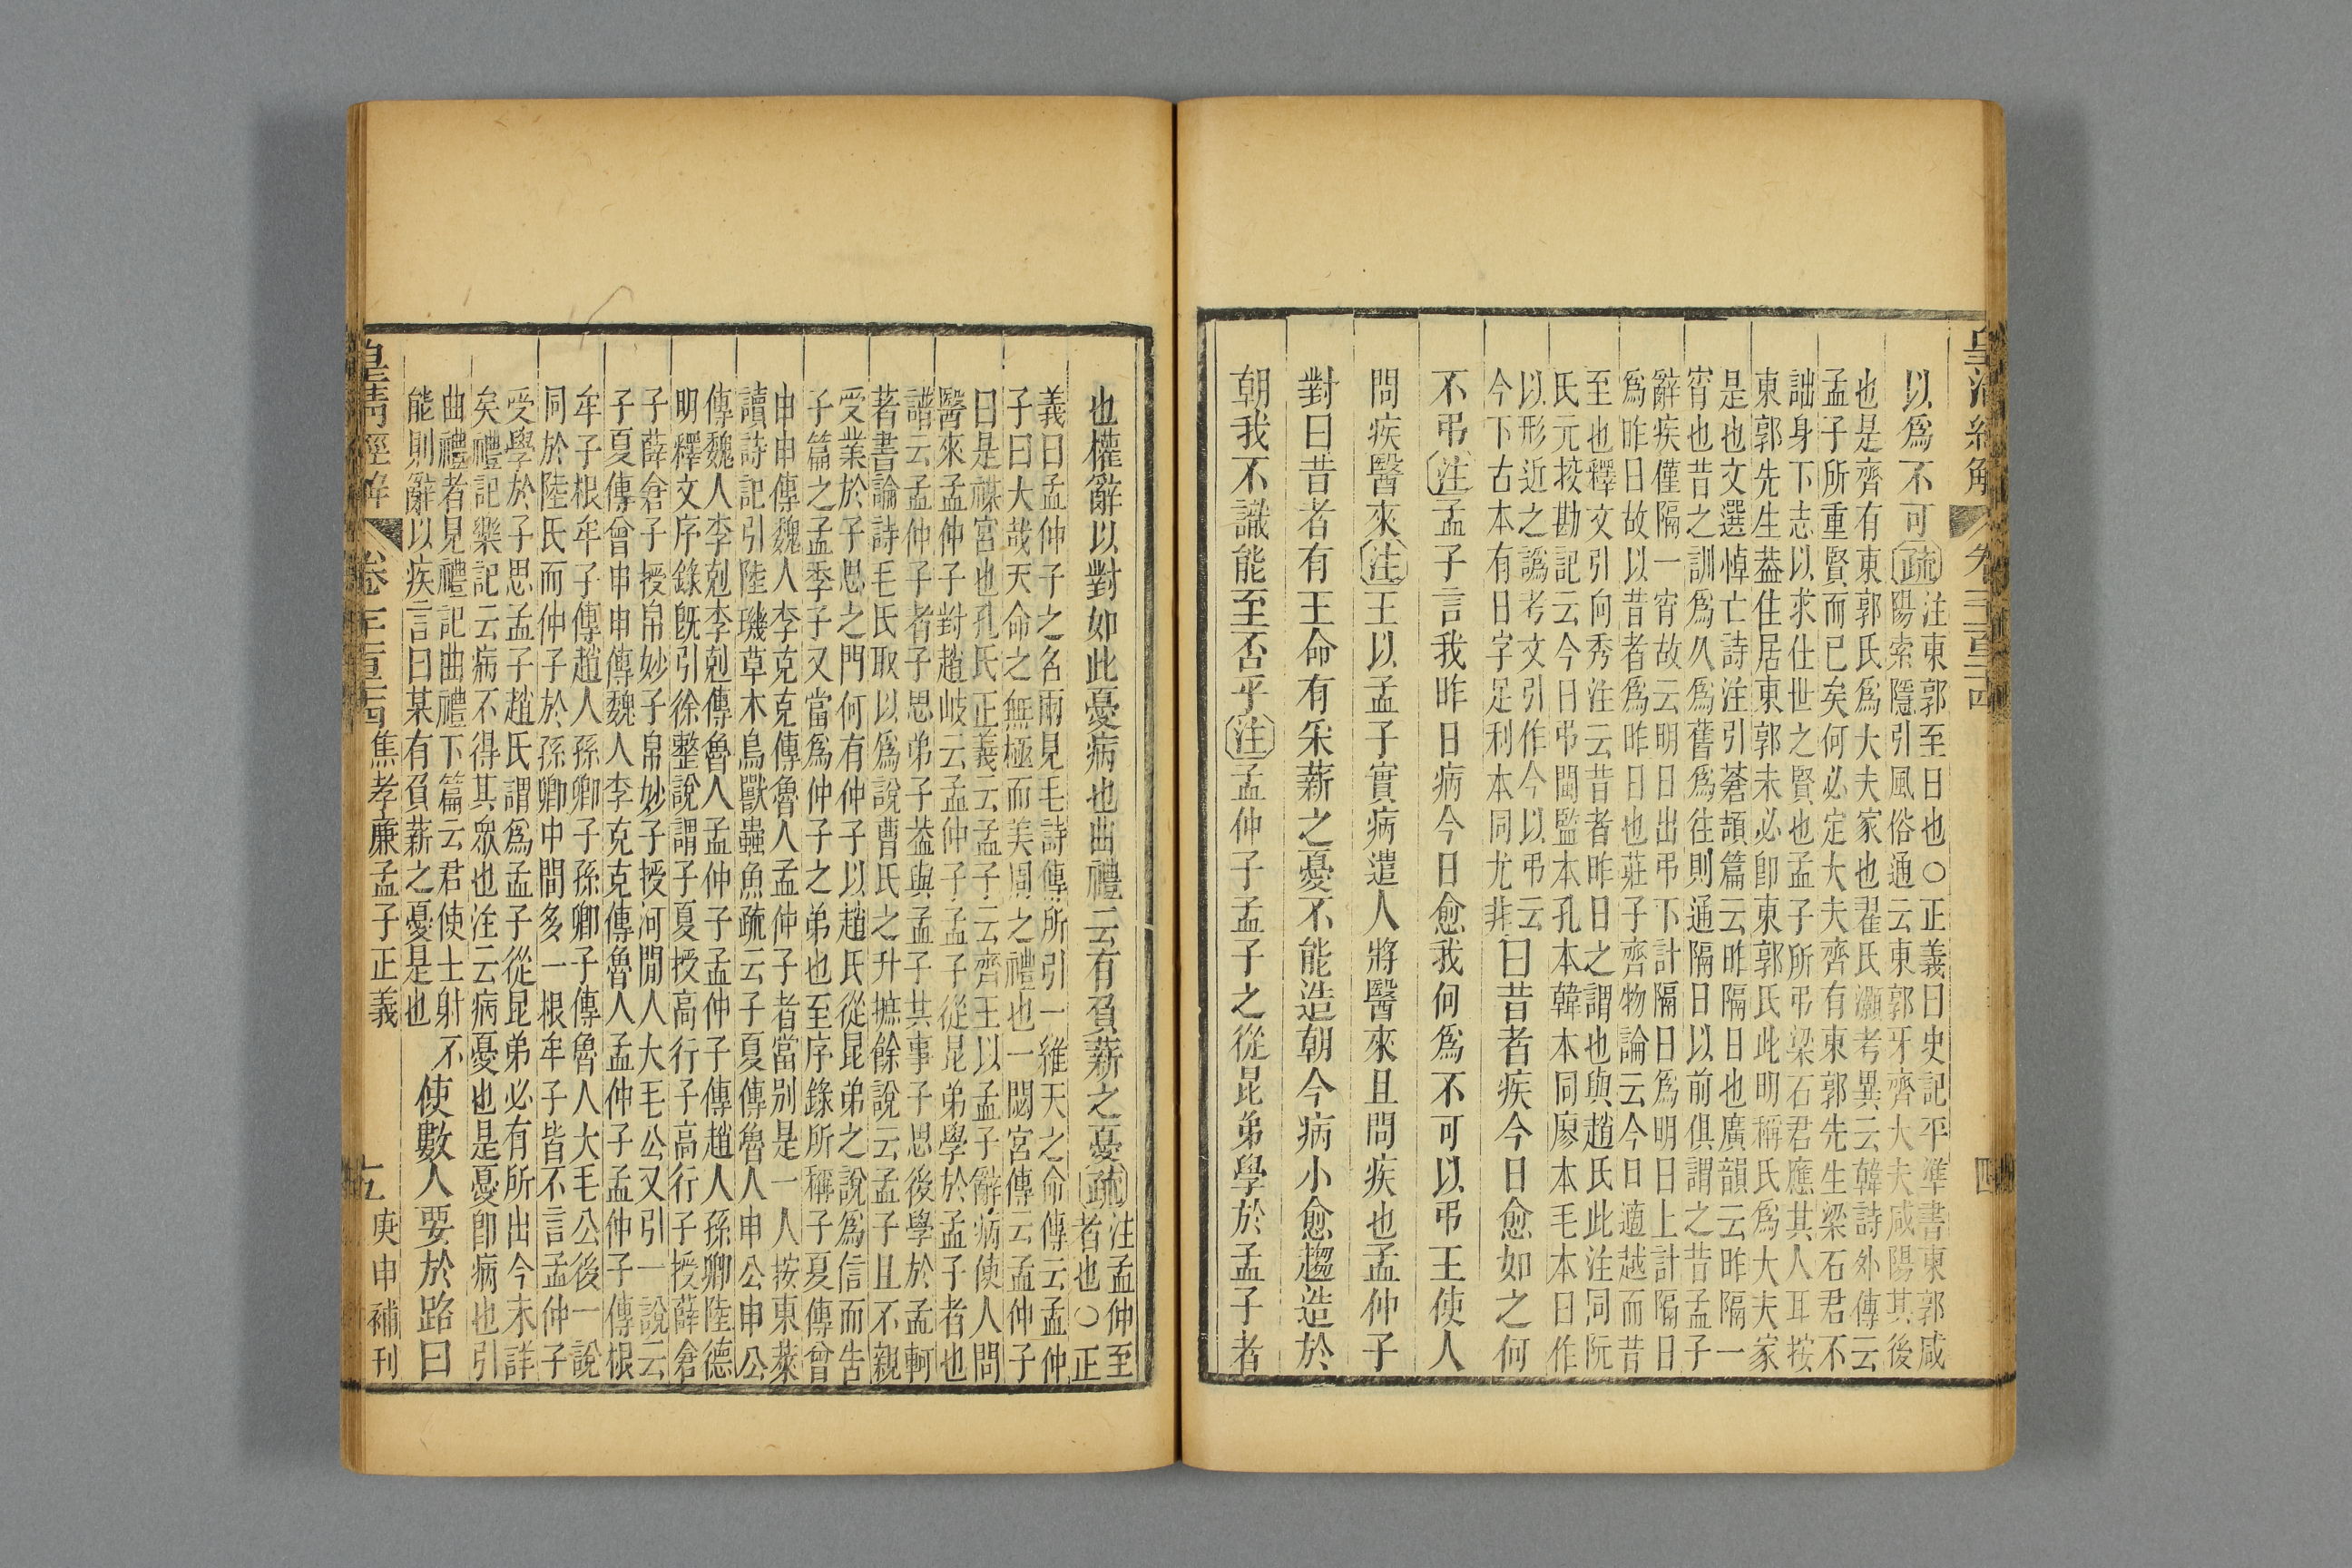 皇清經解
四
以爲不可疏
注東郭至日也○正義曰史記平準書東郭咸
陽索隱引風俗通云東郭牙齊大夫咸陽其後
也是齊有東郭氏爲大夫家也翟氏灝考異云韓詩外傳云
孟子所重賢而已矣何必定大夫齊有東郭先生梁石君不
詘身下志以求仕世之賢也孟子所弔梁石君應其人耳按
東郭先生葢住居東郭未必卽東郭氏此明稱氏爲大夫家
是也文選悼亡詩注引蒼頡篇云昨隔日也廣韻云昨隔一
宵也昔之訓爲久爲舊爲往則通隔日以前俱謂之昔孟子
辭疾僅隔一宵故云明日出弔下計隔日爲明日上計隔日
爲昨日故以昔者爲昨日也莊子齊物論云今日適越而昔
至也釋文引向秀注云昔者昨日之謂也與趙氏此注同阮
氏元挍勘記云今日弔閩監本孔本韓本同廖本毛本日作
以形近之譌考文引作今以弔云
今下古本有日字足利本同尤非
曰昔者疾今日愈如之何
不弔注孟子言我昨日病今日愈我何爲不可以弔王使人
問疾醫來注王以孟子實病遣人將醫來且問疾也孟仲子
對曰昔者有王命有采薪之憂不能造朝今病小愈趨造於
朝我不識能至否乎注孟仲子孟子之從昆弟學於孟子者
也權辭以對如此憂病也曲禮云有負薪之憂疏
注孟仲至
者也○正
義曰孟仲子之名兩見毛詩傳所引一維天之命傳云孟仲
子曰大哉天命之無極而美周之禮也一閟宮傳云孟仲子
曰是禖宮也孔氏正義云孟子云齊王以孟子辭病使人問
醫來孟仲子對趙岐云孟仲子孟子從昆弟學於孟子者也
譜云孟仲子者子思弟子葢與孟子共事子思後學於孟軻
著書論詩毛氏取以爲說曹氏之升摭餘說云孟子且不親
受業於子思之門何有仲子以趙氏從昆弟之說爲信而告
子篇之孟季子又當爲仲子之弟也至序錄所稱子夏傳曾
申申傳魏人李克克傳魯人孟仲子者當别是一人按東萊
讀詩記引陸璣草木鳥獸蟲魚疏云子夏傳魯人申公申公
傳魏人李剋李剋傳魯人孟仲子孟仲子傳趙人孫卿陸德
明釋文序錄旣引徐整說謂子夏授高行子高行子授薛倉
子薛倉子授帛妙子帛妙子授河閒人大毛公又引一說云
子夏傳曾申申傳魏人李克克傳魯人孟仲子孟仲子傳根
牟子根牟子傳趙人孫卿子孫卿子傳魯人大毛公後一說
同於陸氏而仲子於孫卿中間多一根牟子皆不言孟仲子
受學於子思孟子趙氏謂爲孟子從昆弟必有所出今未詳
矣禮記樂記云病不得其眾也注云病憂也是憂卽病也引
曲禮者見禮記曲禮下篇云君使士射不
能則辭以疾言曰某有負薪之憂是也
使數人要於路曰
皇清經解
焦孝廉孟子正義
五
庚申補刊